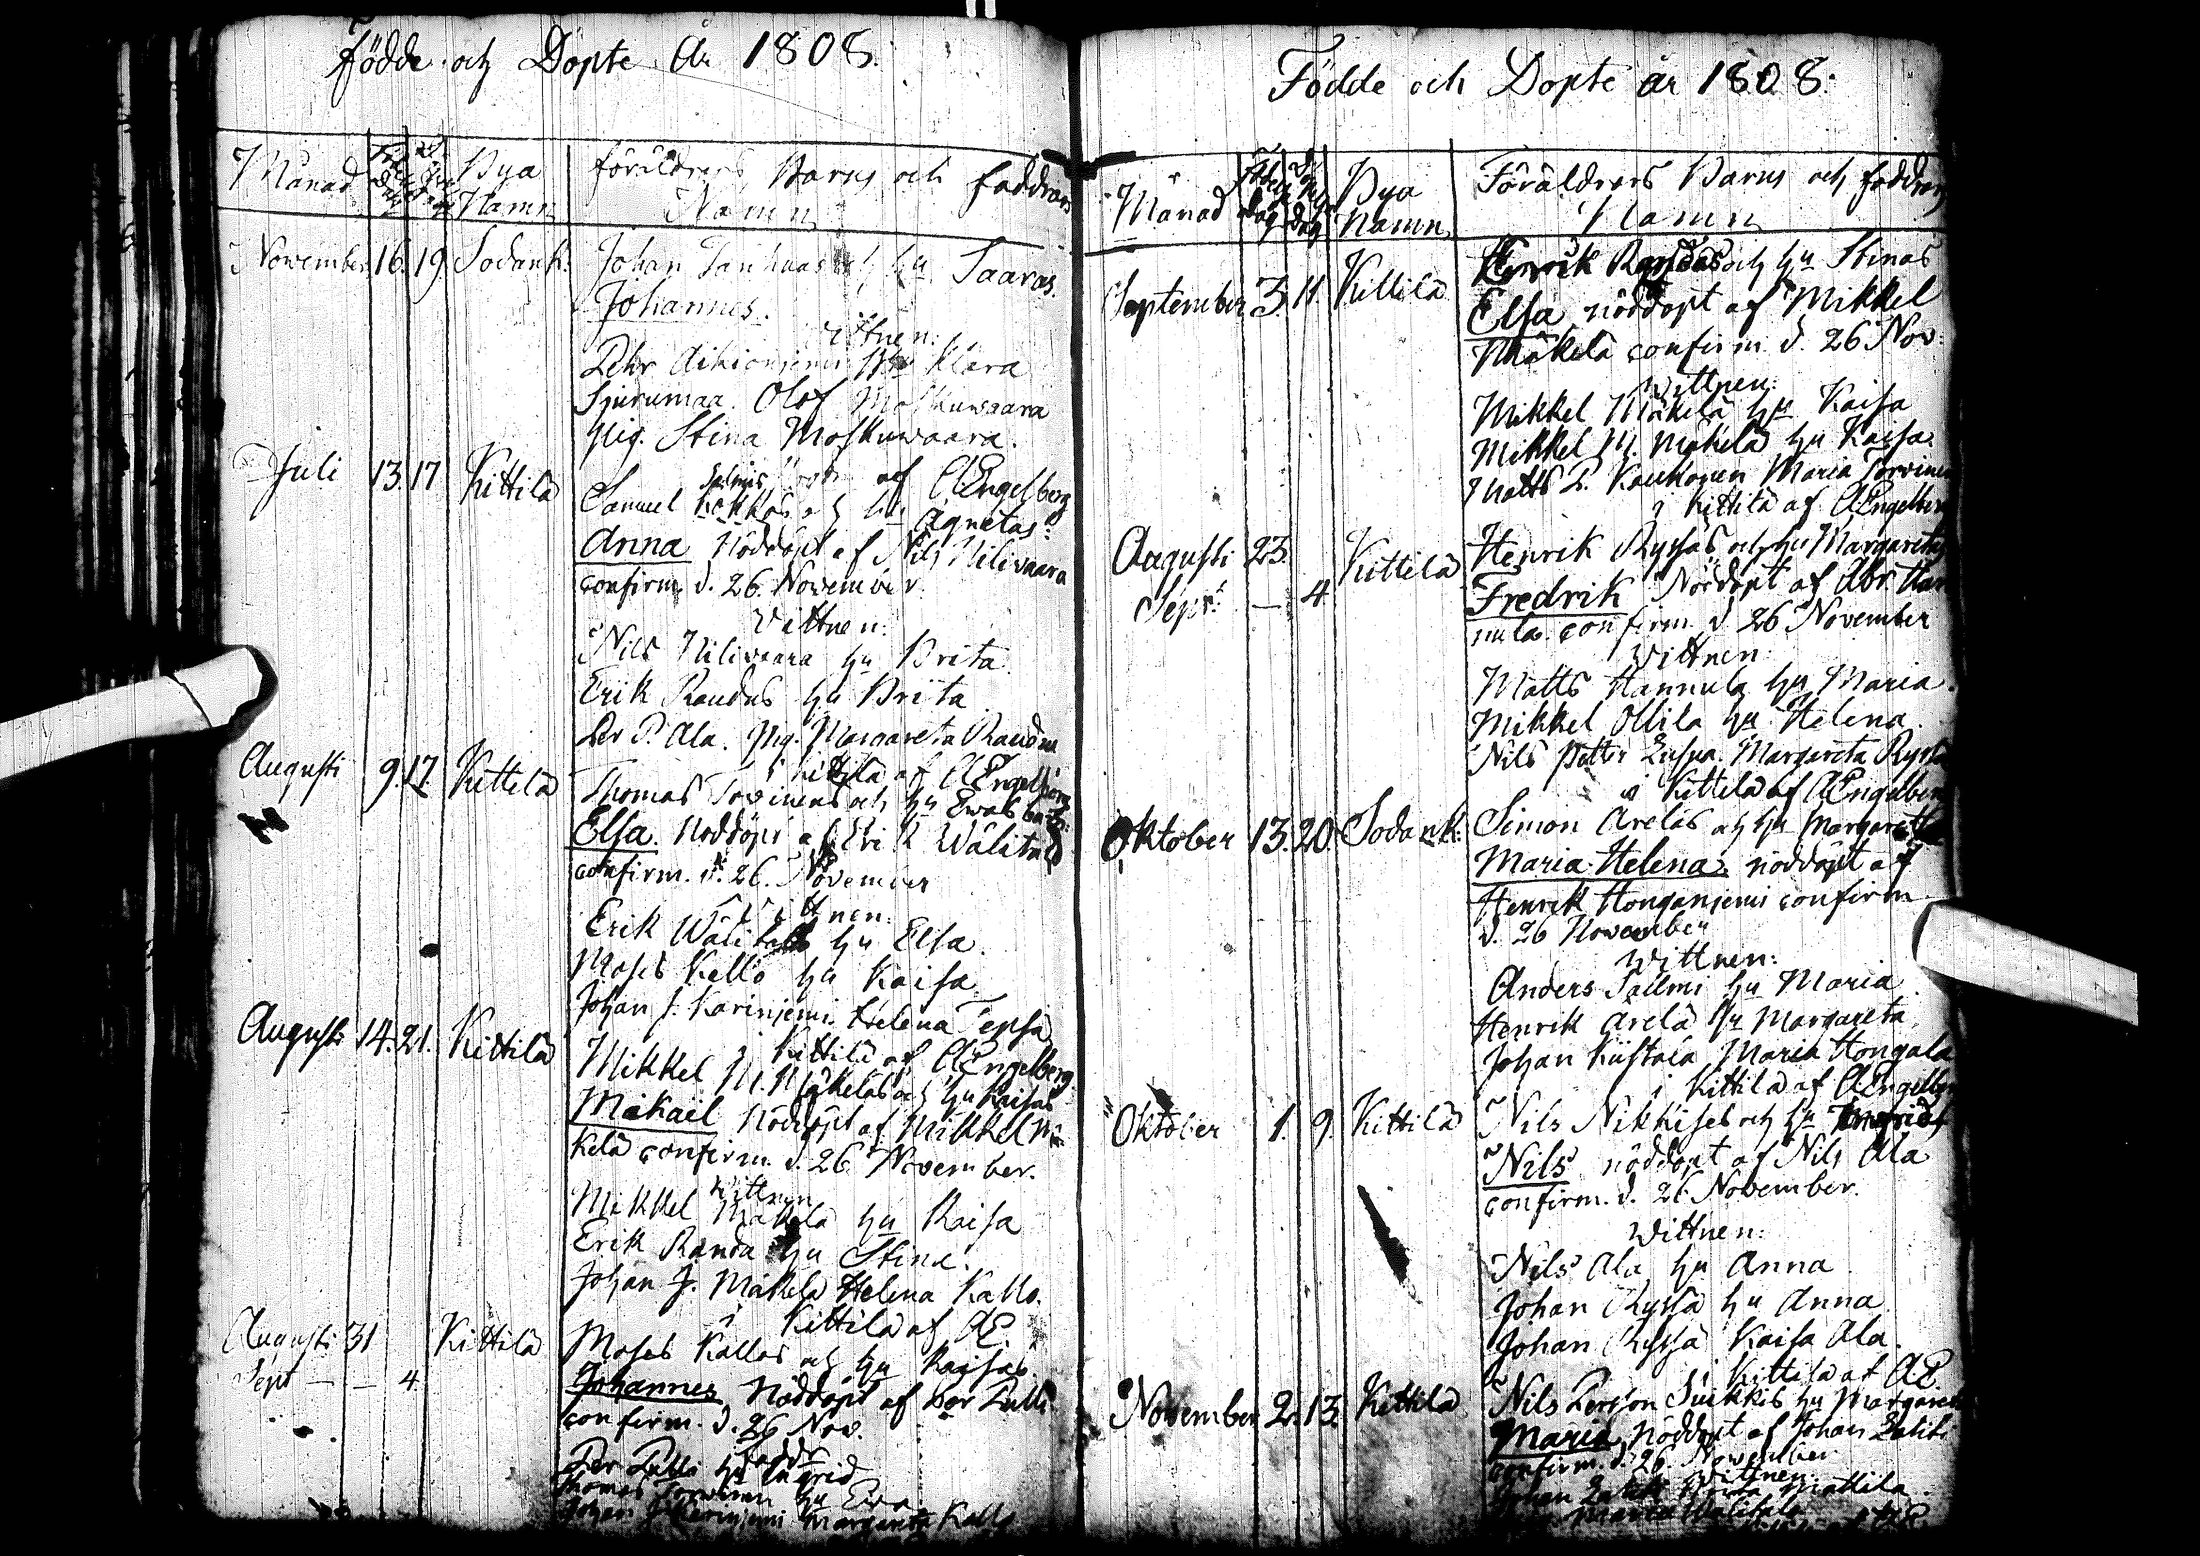 Födde och Döpte År 1808.
Månad
Bya Namn
föräldrars, Barns och faddrars
Namn
November 16. 19. Sodank. Johan Tanhuas och hu Saaras.
Johannes.
vittnen:
Pehr Aikioniemi hu Klara
Sjurumaa. Olof Moskuwaara
pig. Stina Moskuwaara.
af AEngelberg
Juli 13. 17 Kittilä Samuel Kokkos och hu Agnetas
Anna Nöddöpt af Nils Nilivaara
confirm. d. 26. November.
Vittnen:
Nils Nilivaara hu Brita
Erik Raudus hu Brita
Per P. Ala. pig. Margareta Raudus
i Kittilä af AEngelberg
Augusti 9. 17. Kittilä Thomas Torvinens och hu Ewas barn
Elsa. Nöddöpt af Erik Wälitalo
confirm. d. 26. November
Vittnen:
Erik Wälitalo hu Elsa.
Moses Kello hu Kaisa
Johan J. Kariniemi Helena Tepsa
i Kittilä af AEngelberg.
Augusti 14. 21. Kittilä Mikkel M. Mäkeläs och hu Kaisas
Mikael Nöddöpt af Mikkel Mä-
kelä confirm. d. 26 November.
Wittnen
Mikkel Mäkelä hu Kaisa
Erik Randa hu Stina.
Johan J. Mäkelä Helena Kallo.
i Kittilä af AE.
Augusti 31 Kittilä Moses Kallos och hu Kaisas
Sept — — 4. Johannes Nöddöpt af Per
confirm. d. 26 Nov.
Per hu Ingrid
Thomas Torvinen hu Eva
Johan J Kariniemi Margareta Kallo
Födde och Döpte år 1808.
Månad
Bya Namn
Föräldrars Barns och faddrars
Namn
September 3. 11. Kittilä Henrik och hu Stinas
Elsa nöddöpt af Mikkel
Mäkelä confirm. d. 26 Nov.
Wittnen:
Mikkel Mäkelä hu Kaisa
Mikkel M. Mäkelä hu Kaisa.
Matts P. Kaukonen Maria Torvinen
i Kittilä af AEngelberg
Augusti 23. Kittilä Henrik Ryssäs och hu Margaretas
Sept. — 4 Fredrik Nöddöpt af Abr. Han-
nula. confirm. d. 26 November
Wittnen:
Matts Hannula hu Maria.
Mikkel Ollila hu Helena.
Nils Petter Margareta Ryssä
i Kittilä af AEngelberg
Oktober 13. 20. Sodank. Simon Areläs och hu Margaretha
Maria Helena. nöddöpt af
Henrik Honganiemi confirm.
d. 26 November
Wittnen:
Anders Salmi hu Maria.
Henrik Arelä hu Margareta
Johan Kiistala Maria Hongala
i Kittilä af AEngelberg
Oktober 1. 9. Kittilä Nils Nikkises och hu Ingrids
Nils nöddöpt af Nils Ala
confirm. d. 26 November.
Wittnen:
Nils Ala hu Anna
Johan Ryssä hu Anna
Johan Ryssä Kaisa Ala.
i Kittilä af AE
November 2. 13. Kittilä Nils Persson Suikkis hu Margareta
Maria, Nöddöpt af Johan
confirm. d. 26. November
Wittnen:
Johan Brita Mattila
Maria Wälitalo